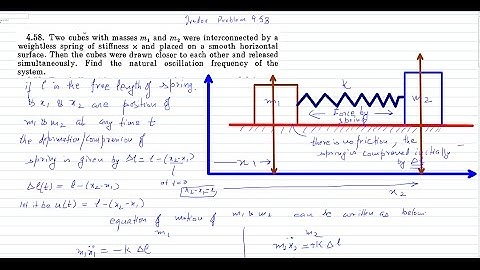 Irodov Problem 4.58
4.58. Two cubes with masses m₁ and m₂ were interconnected by a
weightless spring of stiffness x and placed on a smooth horizontal
surface. Then the cubes were drawn closer to each other and released
simultaneously. Find the natural oscillation frequency of the
system.
if l is the free length of spring.
& x₁ & x₂ are position of
m₁ & m₂ at any time t
the deformation/compression of
spring is given by Δl = l-(x₂-x₁)
at t=0
Δl(t) = l-(x₂-x₁)
let it be u(t) = l-(x₂-x₁)
m₁
k
m2
Force by
spring
there is no friction, the
spring is compressed initially
by
x₁
x₂
equation of motion of m₁ & m₂ can be written as below
m₁
m₂
m₁ẍ₁ = -K Δl
m₂ẍ₂ = +K Δl